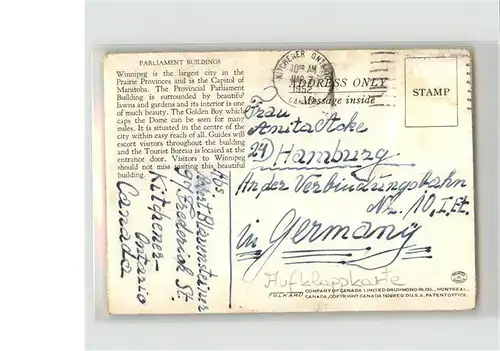 PARLIAMENT BUILDINGS
Winnipeg is the largest city in the
Prairie Provinces and is the Capitol of
Manitoba. The Provincial Parliament
Building is surrounded by beautiful
lawns and gardens and its interior is one
of much beauty. The Golden Boy which
caps the Dome can be seen for many
miles. It is situated in the centre of the
city within easy reach of all. Guides will
escort visitors throughout the building
and the Tourist Bureau is located at the
entrance door. Visitors to Winnipeg
should not miss visiting this beautiful
building.
KITCHENER ONTARIO
10 AM
MAR 7
1952
CANADA
ADDRESS ONLY
Message inside
STAMP
Frau
Anita
24 Hamburg
An der Verbindungsbahn
Nr. 10, I. Et.
in Germany
Kurt
Frederick St.
Kitchener-
Ontario
Canada
Aufklappkarte
FOLKARD COMPANY OF CANADA LIMITED DRUMMOND BLDG., MONTREAL,
CANADA, COPYRIGHT CANADA